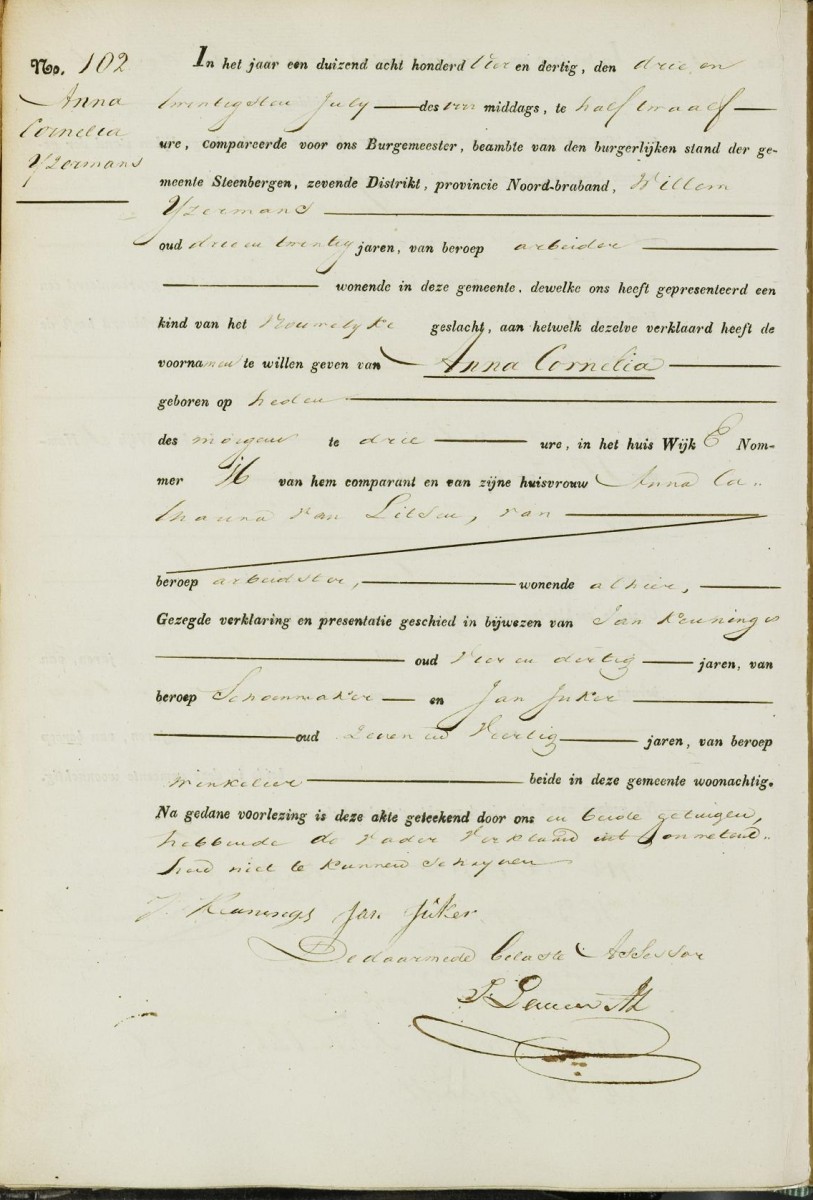 No. 102
Anna
Cornelia
Yzermans
In het jaar een duizend acht honderd Vier en dertig, den drie en
twintigsten July des voor middags, te half twaalf
ure, compareerde voor ons Burgemeester, beambte van den burgerlijken stand der ge-
meente Steenbergen, zevende Distrikt, provincie Noord-braband, Willem
Yzermans
oud drie en twintig jaren, van beroep arbeider
wonende in deze gemeente, dewelke ons heeft gepresenteerd een
kind van het Vrouwelyke geslacht, aan hetwelk dezelve verklaard heeft de
voornamen te willen geven van Anna Cornelia
geboren op heden
des morgens te drie ure, in het huis Wijk E Nom-
mer van hem comparant en van zijne huisvrouw Anna Ca-
tharina van
beroep arbeidster, wonende alhier,
Gezegde verklaring en presentatie geschied in bijwezen van Jan Keunings
oud Vier en dertig jaren, van
beroep Schoenmaker en Jan Juker
oud Zeven en Veertig jaren, van beroep
winkelier beide in deze gemeente woonachtig.
Na gedane voorlezing is deze akte geteekend door ons en beide getuigen,
hebbende de Vader Verklaard uit onwetend-
heid niet te kunnen schryven
J. Keunings Jan Juker
De daarmede belaste Assessor